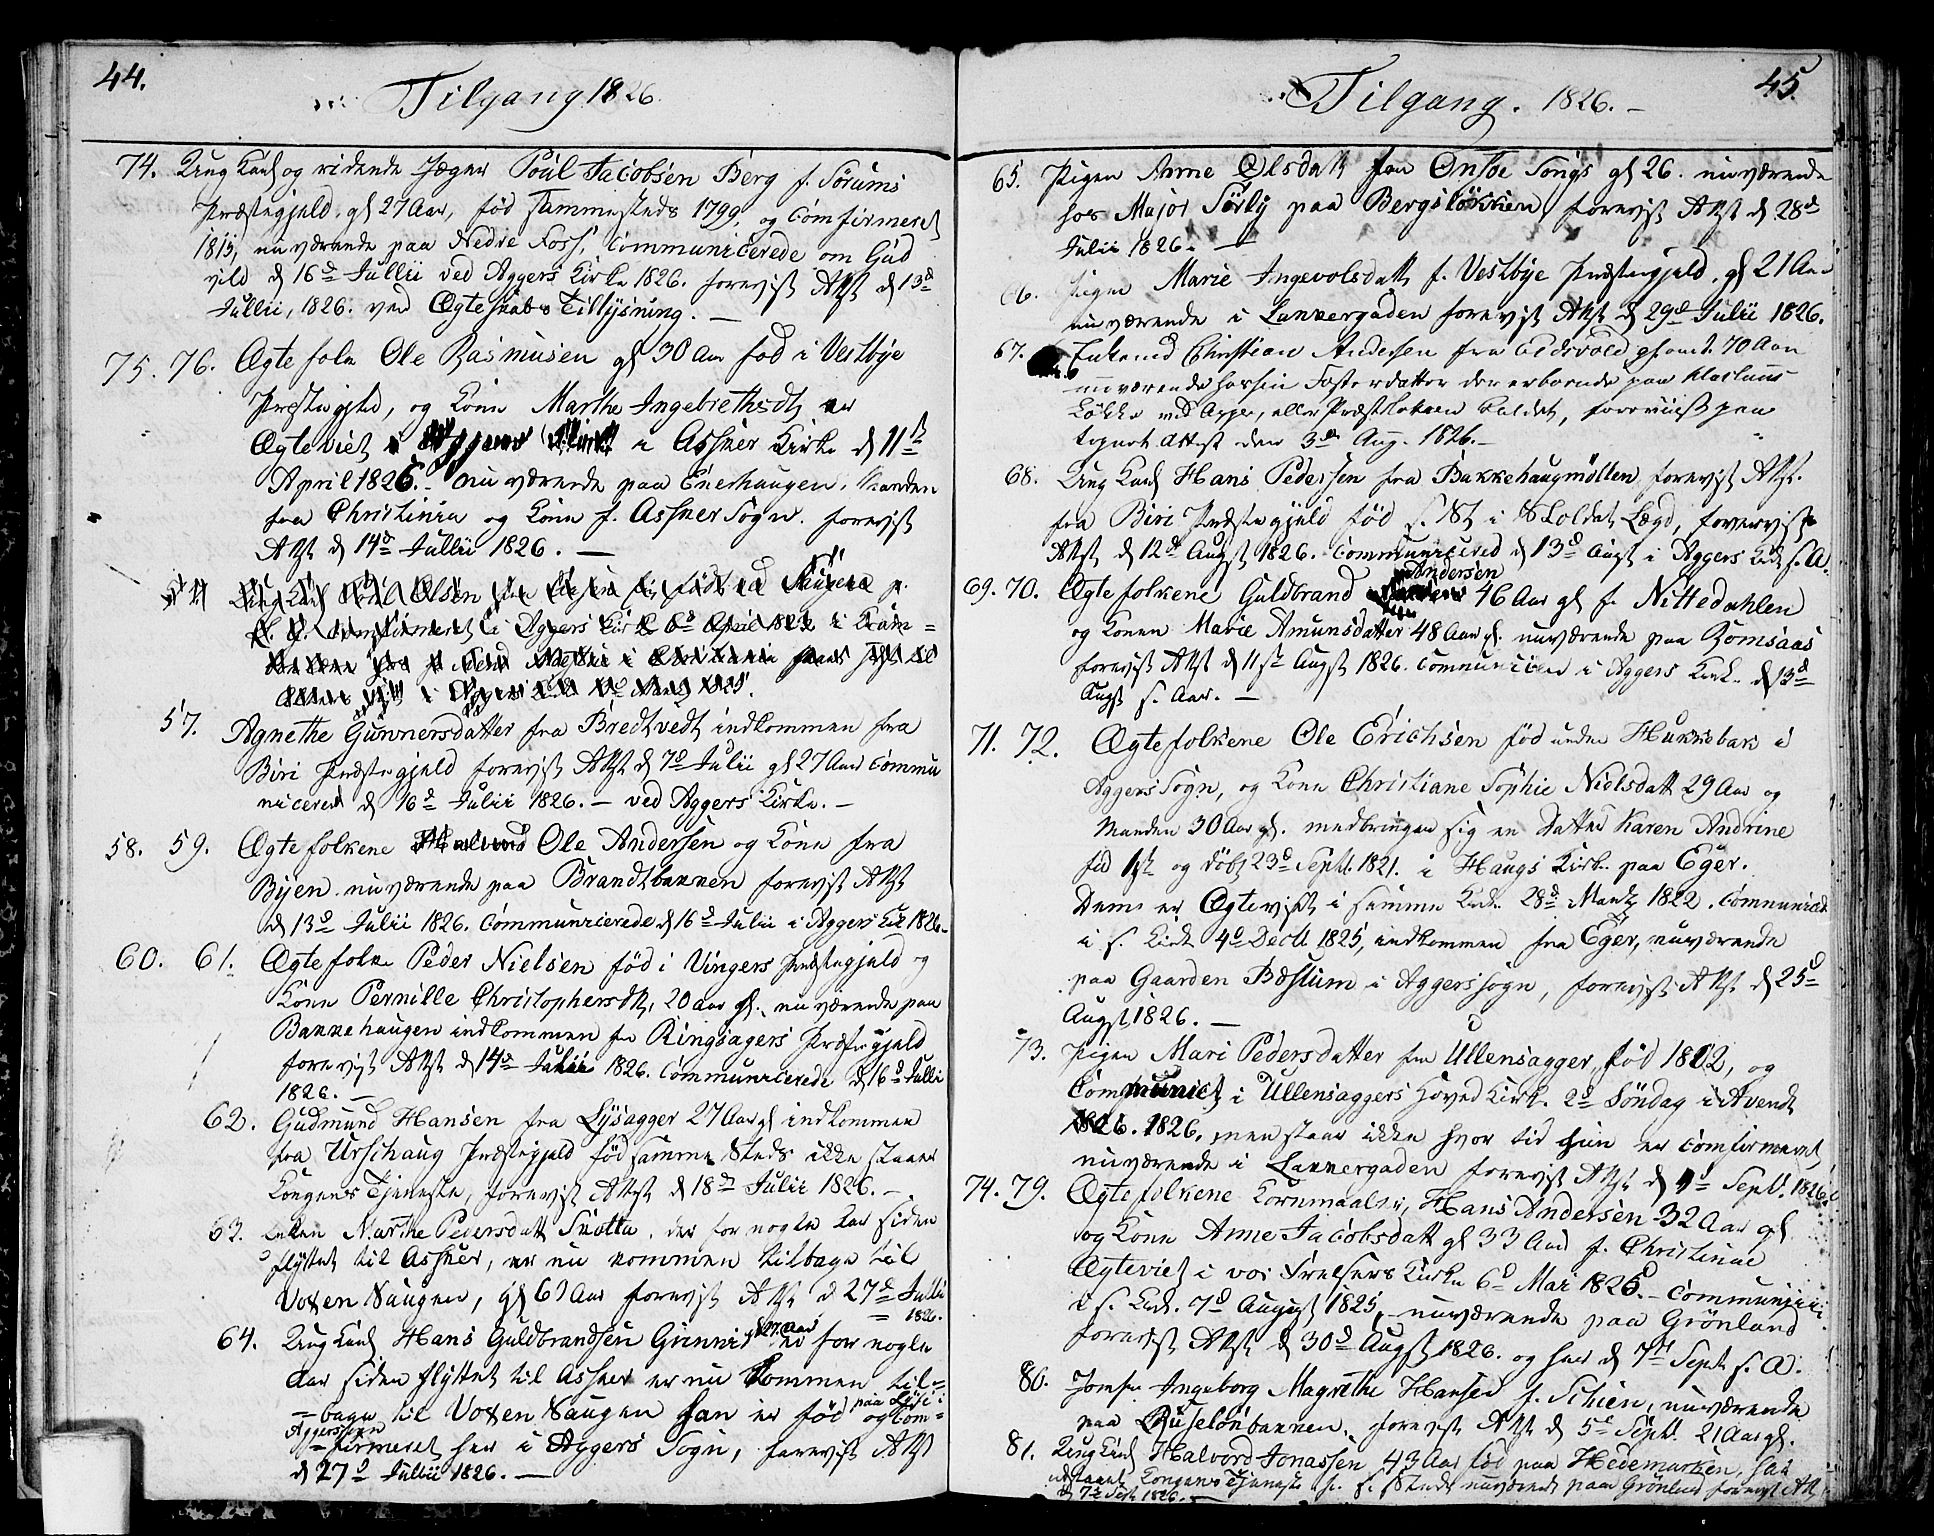 44.
Tilgang 1826.
74. Ung Karl og ridende Jæger Poul Jacobsen Berg f. Sörums
Præstegjeld. gl 27 Aar, föd sammesteds 1799. og Comfirmeret
1815, nuværende paa Nedre Foss, Communicerede om Gud
vild d 16d Julii ved Aggers Kirke 1826. foreviist Attst d 13d
Julii, 1826. ved Ægteskabs Tillysning. —
75. 76. Ægte folk Ole Rasmusen gl 30 Aar föd i Vestbye
Præstegjeld, og Kone Marthe Ingebrethsdt er
Ægteviet i Asker Kirke d 11te
April 1826. – nuværende paa Enerhaugen. Manden
fra Christinia og Kone f. Asker Sogn. foreviist
Attst d 14d Julii 1826. —
57. Agnethe Gunnersdatter fra Bredtvedt indkommen fra
Biri Præstegjeld foreviist Attst d 7d Julii gl 27 Aar Commu
niceret d 16d Julii 1826. – ved Aggers Kirke. –
58. 59. Ægte folkene Ole Andersen og Kone fra
Byen nuværende paa Brandtbakken foreviist Attst
d 13d Julii 1826. Communicerede d 16d Julii i Aggers Kirk 1826.
60. 61. Ægte folk Peder Nielsen föd i Vingers Præstegjeld og
Kone Pernille Christophersdtr, 20 aar gl. nuværende paa
Bakkehaugen indkommen fra Ringsagers Præstegjeld
foreviist Attst d 14d Julii 1826. Communicerede d 16d Julii
1826. –
62. Gudmund Hansen fra Lysagger 27 Aar gl indkommen
fra Urschaug Præstegjeld föd samme Steds ikke staaer
Kongens Tjeneste, foreviist Attst d 18de Julii 1826. –
63. Enken Marthe Pedersdatt Snotta. der for nogle Aar siden
flyttet til Asker, er nu kommen tilbage til
Voxen Saugen, gl 63 Aar foreviist Attst d 27d Julii
1826.
64. Ung Karl Hans Guldbrandsen gl 27. Aar for nogle
Aar siden flyttet til Asker er nu kommen til-
-bage til Voxen Saugen han er föd paa og Com-
Aggers Sogn
-firmeret her i Aggers Sogn, foreviist Attst
d 27d Julii 1826. —
45.
Tilgang. 1826. –
65. Pigen Anne Olsdatt fra Onsöe Sogn gl 26. nuværende
hos Major Sörby paa Bergslökken, foreviist Attst d 28d
Julii 1826. —
66. Pigen Marie Ingevolsdatt f. Vestbye Præstegjeld. gl 21 Aar
nuværende i Lakkergaden foreviist Attst d 29d Julii 1826.
67. Enkemd Christian Andersen fra Eidsvold gl omt. 70 Aar
nuværende hos sin Fosterdatter der er boende paa Klaslaus
Løkke ved Agger, eller Præsteløkken kaldet, foreviist paa
tegnet Attest den 3de Aug. 1826. –
68. Ung Karl Hans Pedersen fra Bakkehaugmöllen foreviist Attst.
fra Biri Præstegjeld föd s. St i Soldat Lægd, foreviist
Attst d 12d Augst 1826. Communicered d 13d Augst i Aggers Kirk s. A.
69. 70. Ægte folkene Guldbrand Andersen 46 Aar gl f. Nittedahlen
og Konen Marie Amunsdatter 48 Aar gl. nuværende paa Romsaas
foreviist Attst d 11te Augst 1826. Communicered i Aggers Kirk. d 13d
Augst s. Aar. –
71. 72. Ægte folkene Ole Erichsen föd under Hukkebak i
Aggers Sogn, og Kone Christiane Sophie Nielsdatt 29 Aar og
Manden 30 Aar gl. medbringer sig en Datter Karen Andrine
föd og döbt 23d Septbr. 1821. i Haugs Kirk. paa Eger.
Dem er Ægteviet i samme Kirk. 28d Martz 1822. Communiced
i s. Kirk 4d Decbr 1825, indkommen fra Eger, nuværende
paa Gaarden Bæstum i Aggers sogn, foreviist Attst d 25d
Augst 1826. —
73. Pigen Mari Pedersdatter fra Ullensagger, föd 1802, og
Communicet i Ullensaggers Hoved Kirk. 2d Söndag i Avendt
1826. men staar ikke hvor tid hun er Comfirmeret,
nuværende i Lakkergaden foreviist Attst d Septbr. 1826.
74. 79. Ægte folkene Kornmaaler, Hans Andersen 32 Aar gl
og Kone Anne Jacobsdatt gl 33 Aar f. Christiania
Ægteviet i vor Frelsers Kirke 6d Mai 1825. – Communici
i s. Kirk. 7d August 1825, nuværende paa Grönland
foreviist Attst d 30d Augst 1826. og her d 7d Septbr s. A.
80. Jomfr Ingeborg Magrethe Hansen f. Schien, nuværende
paa Ruselöebakken. foreviist Attst d 5d Septbr. 21 Aar gl.
81. Ung Karl Halvord Jonassen 43 Aar föd paa Hedemarken, har
udstaaet Kongens Tjeneste nuværende paa Grönland foreviist Att
d 7de Sept 1826. —